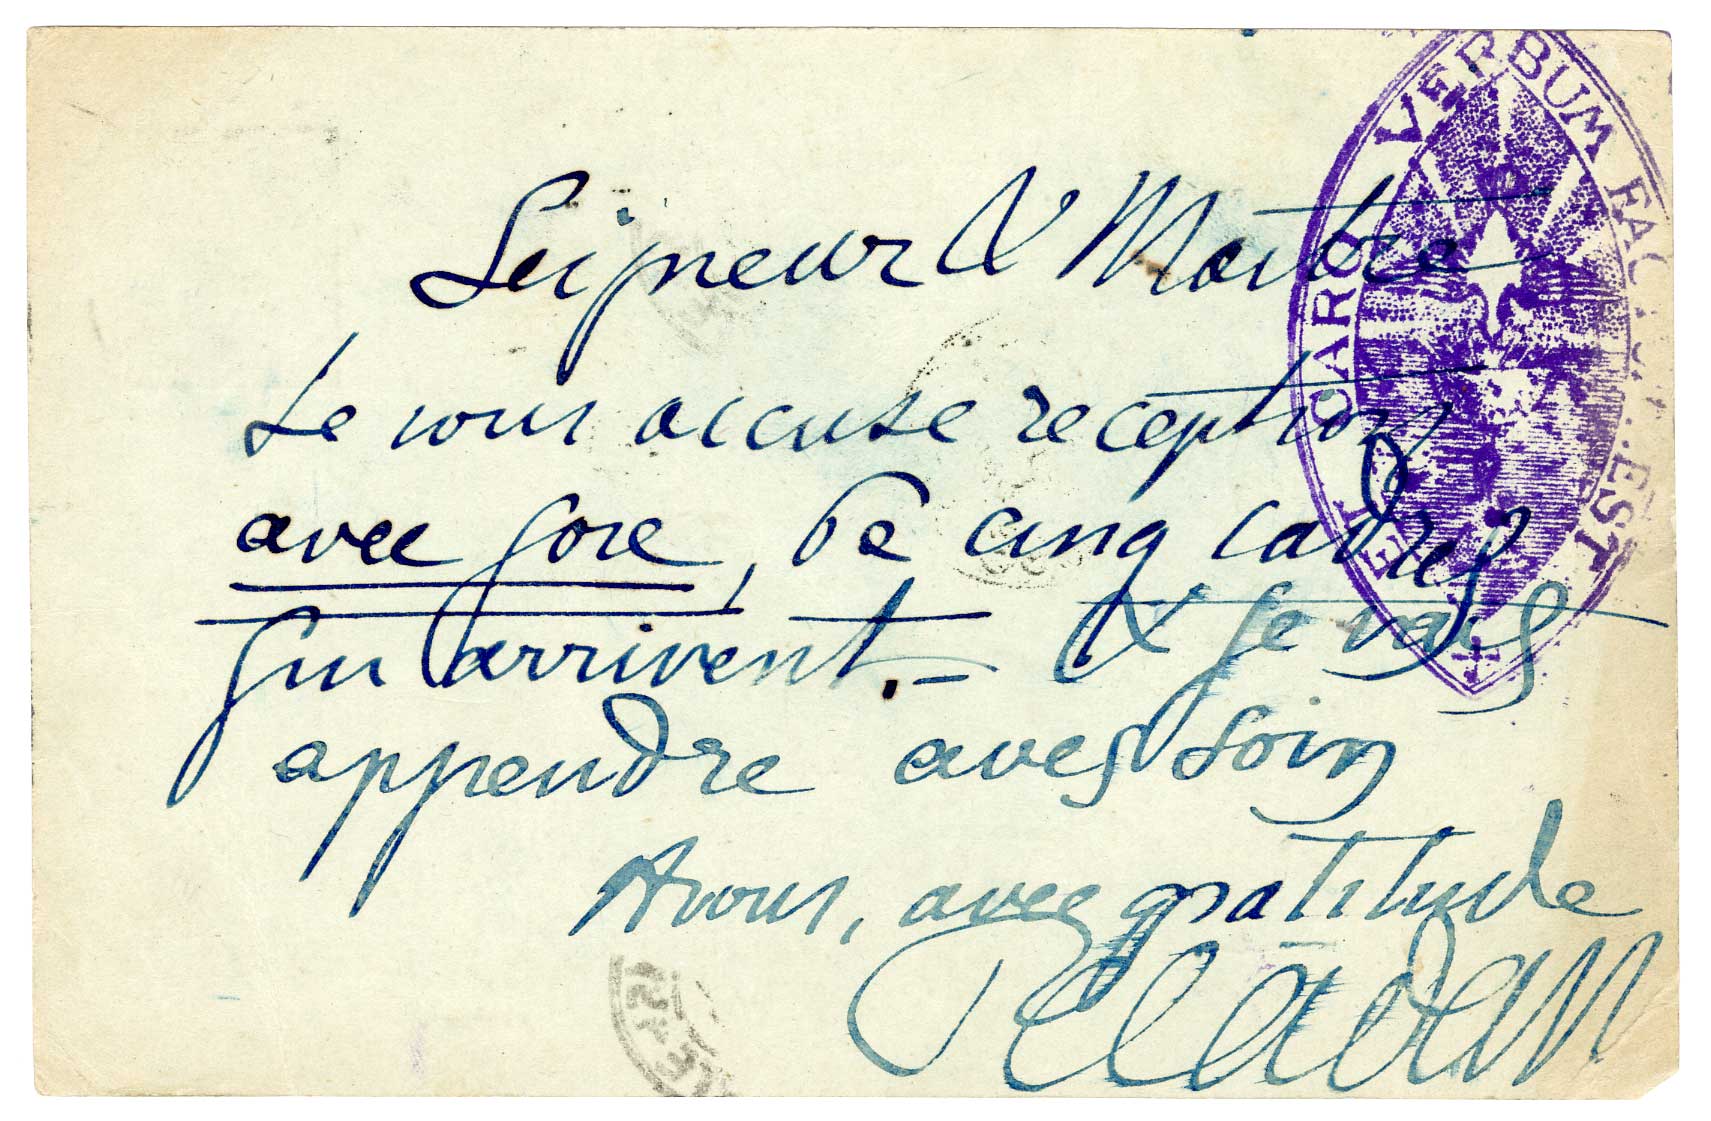 Seigneur & Maitre
Je vous accuse reception
avec joie, de cinq cadres
qui arrivent. — & je vais
appendre avec soin
A vous, avec gratitude
Péladan
ET CARO VERBUM FACTUM EST